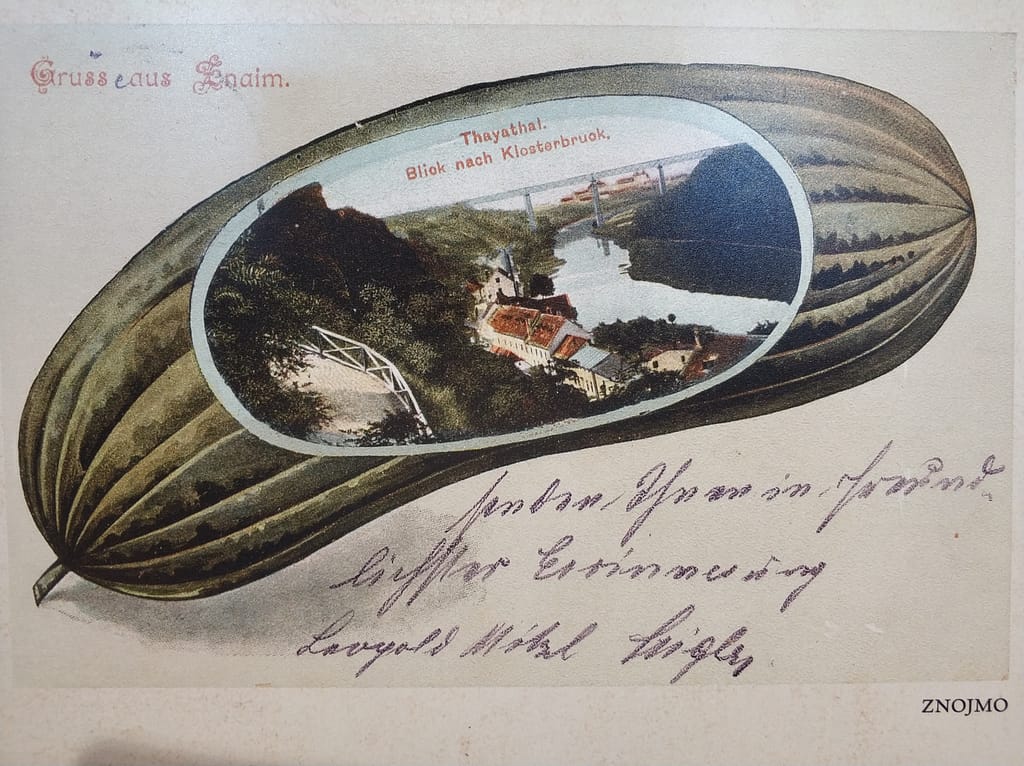 Gruss e aus Znaim.
Thayathal.
Blick nach Klosterbruck.
senden Ihnen in freund
lichster Erinnerung
Leopold
ZNOJMO